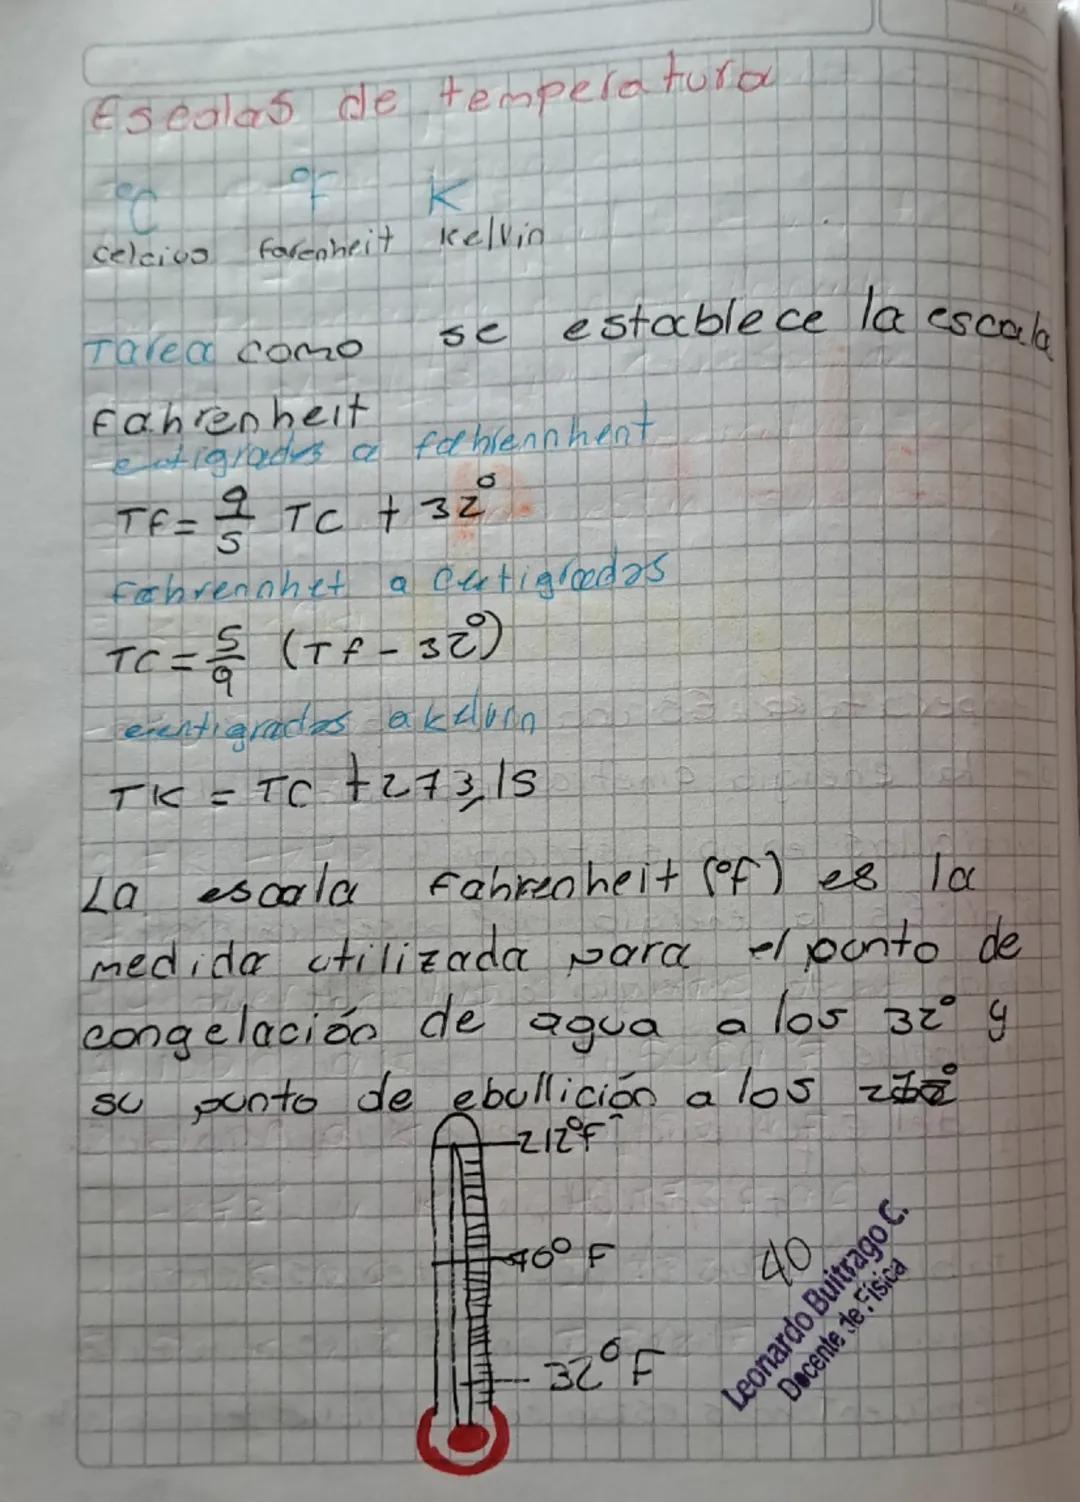 Escalas de temperatura
°C °F K
celcius farenheit kelvin
Tarea como se establece la escala
Fahrenheit
centigrados a fahrennhent
TF = 9/5 TC + 32°
fahrennhet a centigrados
TC = 5/9 (TF - 32°)
centigrados a kelvin
TK = TC + 273,15
La escala Fahrenheit (°f) es la
medida utilizada para el punto de
congelación de agua a los 32° y
su punto de ebullición a los
212°F
40
° F
32°F
Leonardo Buitrago C.
Docente de Física